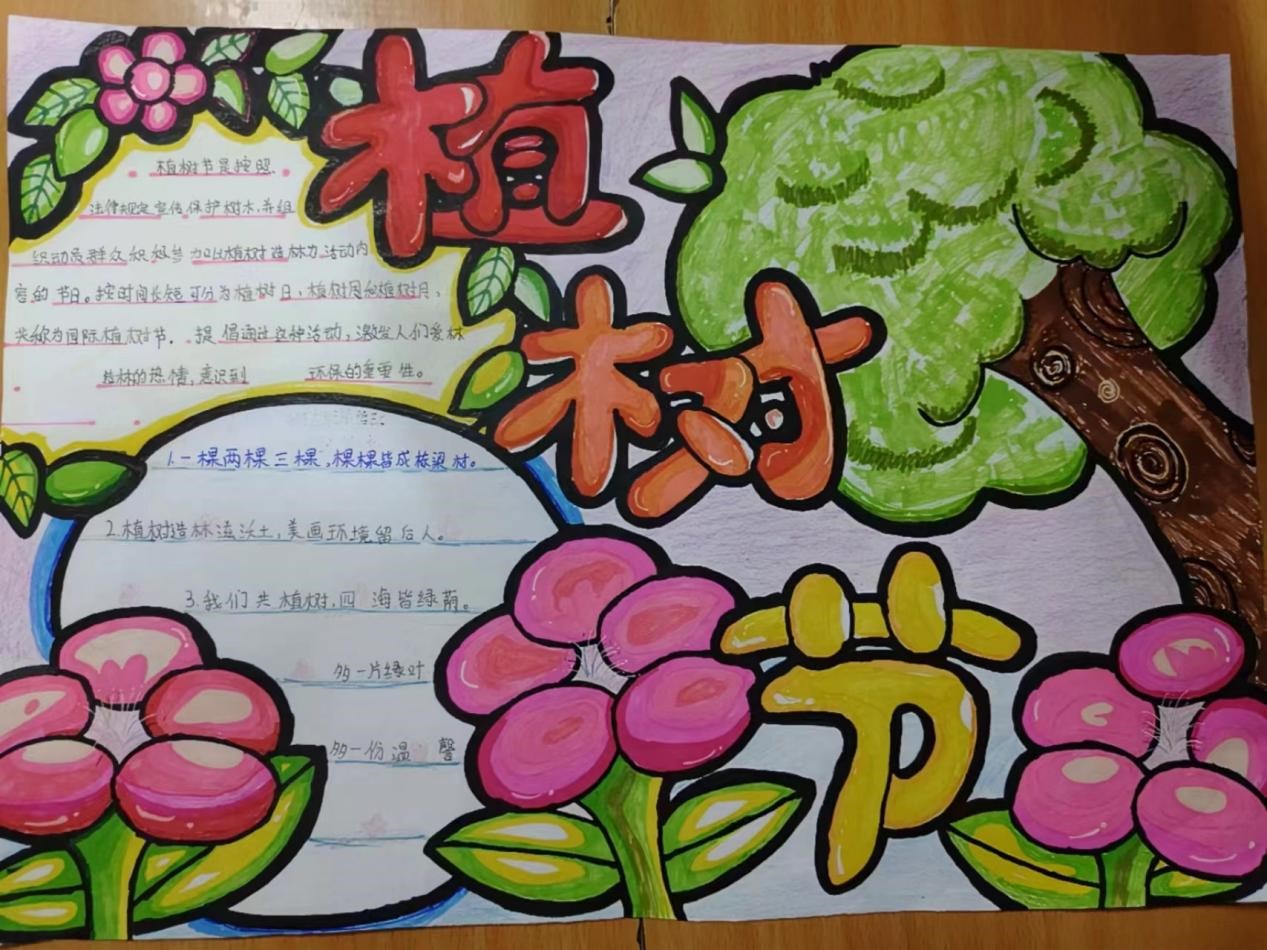 植树节
植树节是按照
法律规定宣传保护树木,并组
织动员群众积极参加以植树造林为活动内
容的节日。按时间长短可分为植树日,植树周和植树月,
共称为国际植树节。提倡通过这种活动,激发人们爱林
造林的热情,意识到 环保的重要性。
1.一棵两棵三棵,棵棵皆成栋梁材。
2.植树造林滋沃土,美画环境留后人。
3.我们共植树,四海皆绿荫。
多一片绿叶
多一份温馨